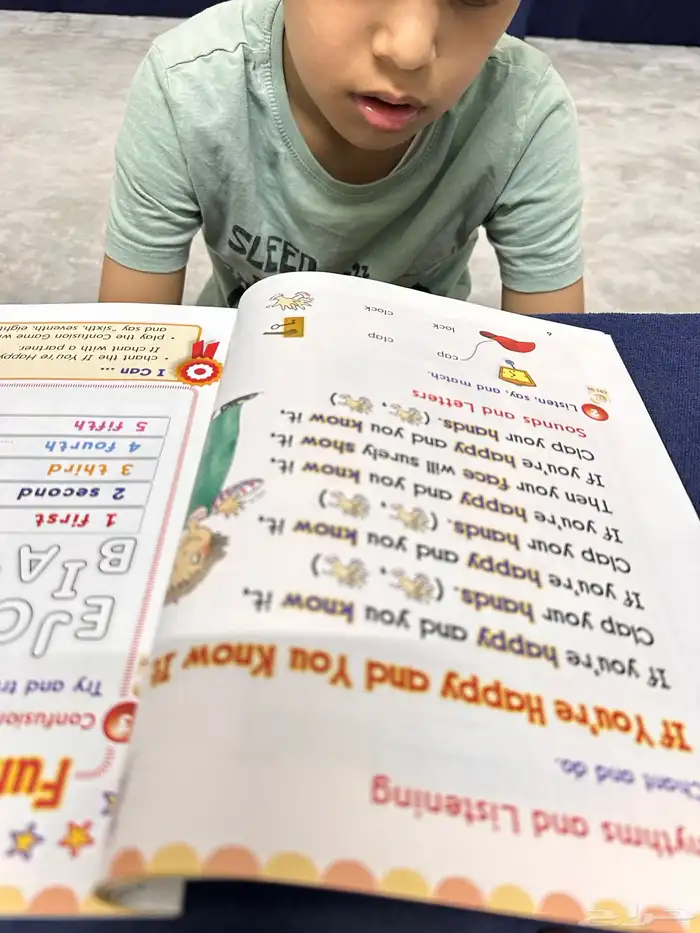 ythms and Listening
Chant and do.
If You're Happy and You Know It
If you're happy and you know it,
Clap your hands. ( , )
If you're happy and you know it,
Clap your hands. ( , )
If you're happy and you know it,
Then your face will surely show it.
If you're happy and you know it,
Clap your hands. ( , )
Sounds and Letters
2 Listen, say, and match.
cap
lock
clap
clock
6
Fun
3 Confusion
Try and tr
EJO
BIA
1 first
2 second
3 third
4 fourth
5 fifth
I Can ...
• chant the If You're Happy
It chant with a partner.
• play the Confusion Game
and say "sixth, seventh, eight
SLEEP
حراج